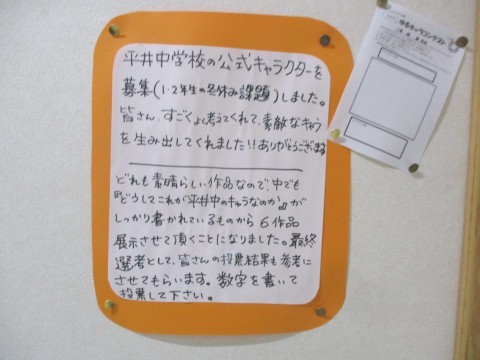 平井中学校の公式キャラクターを
募集(1・2年生の冬休み課題)しました。
皆さん、すごくよく考えてくれて、素敵なキャラ
を生み出してくれました!!ありがとうございます
どれも素晴らしい作品なので、中でも
『どうしてこれが平井中のキャラなのか』が
しっかり書かれているものから6作品
展示させて頂くことになりました。最終
選考として、皆さんの投票結果も参考に
させてもらいます。数字を書いて
投票して下さい。
ゆるキャラコンテスト